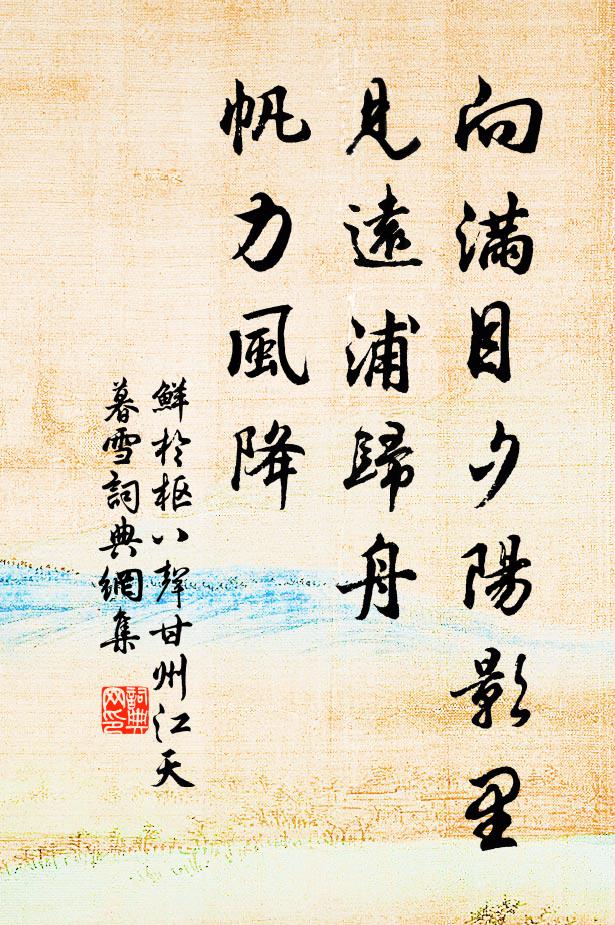 向满目夕陽影里
見遠浦歸舟
帆力風降
鮮於枢八聲甘州江天
暮雪詞典網集
詞典
网印